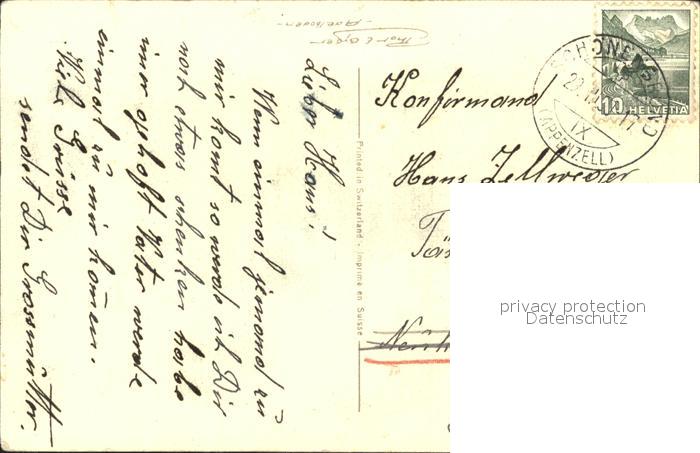 Lieber Hans!
Wenn einmal jemand zu
mir komt so werde ich Dir
noch etwas schenken habe
imer gehoft Vater werde
einmal zu mir komen.
Viele Grüsse
sendet Dir Grossmutter.
Adelboden
Printed in Switzerland - Imprimé en Suisse
Konfirmand
Hans Zellweger
10 HELVETIA
IX
(APPENZELL)
privacy protection
Datenschutz